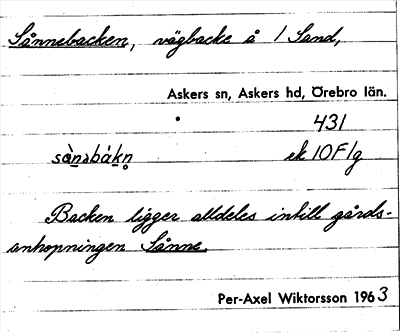 Sånnebacken, vägbacke å 1 Sand,
Askers sn, Askers hd, Örebro län.
431
sånəbàkn̥ ek 10F1g
Backen ligger alldeles intill gårds-
anhopningen Sånne.
Per-Axel Wiktorsson 1963